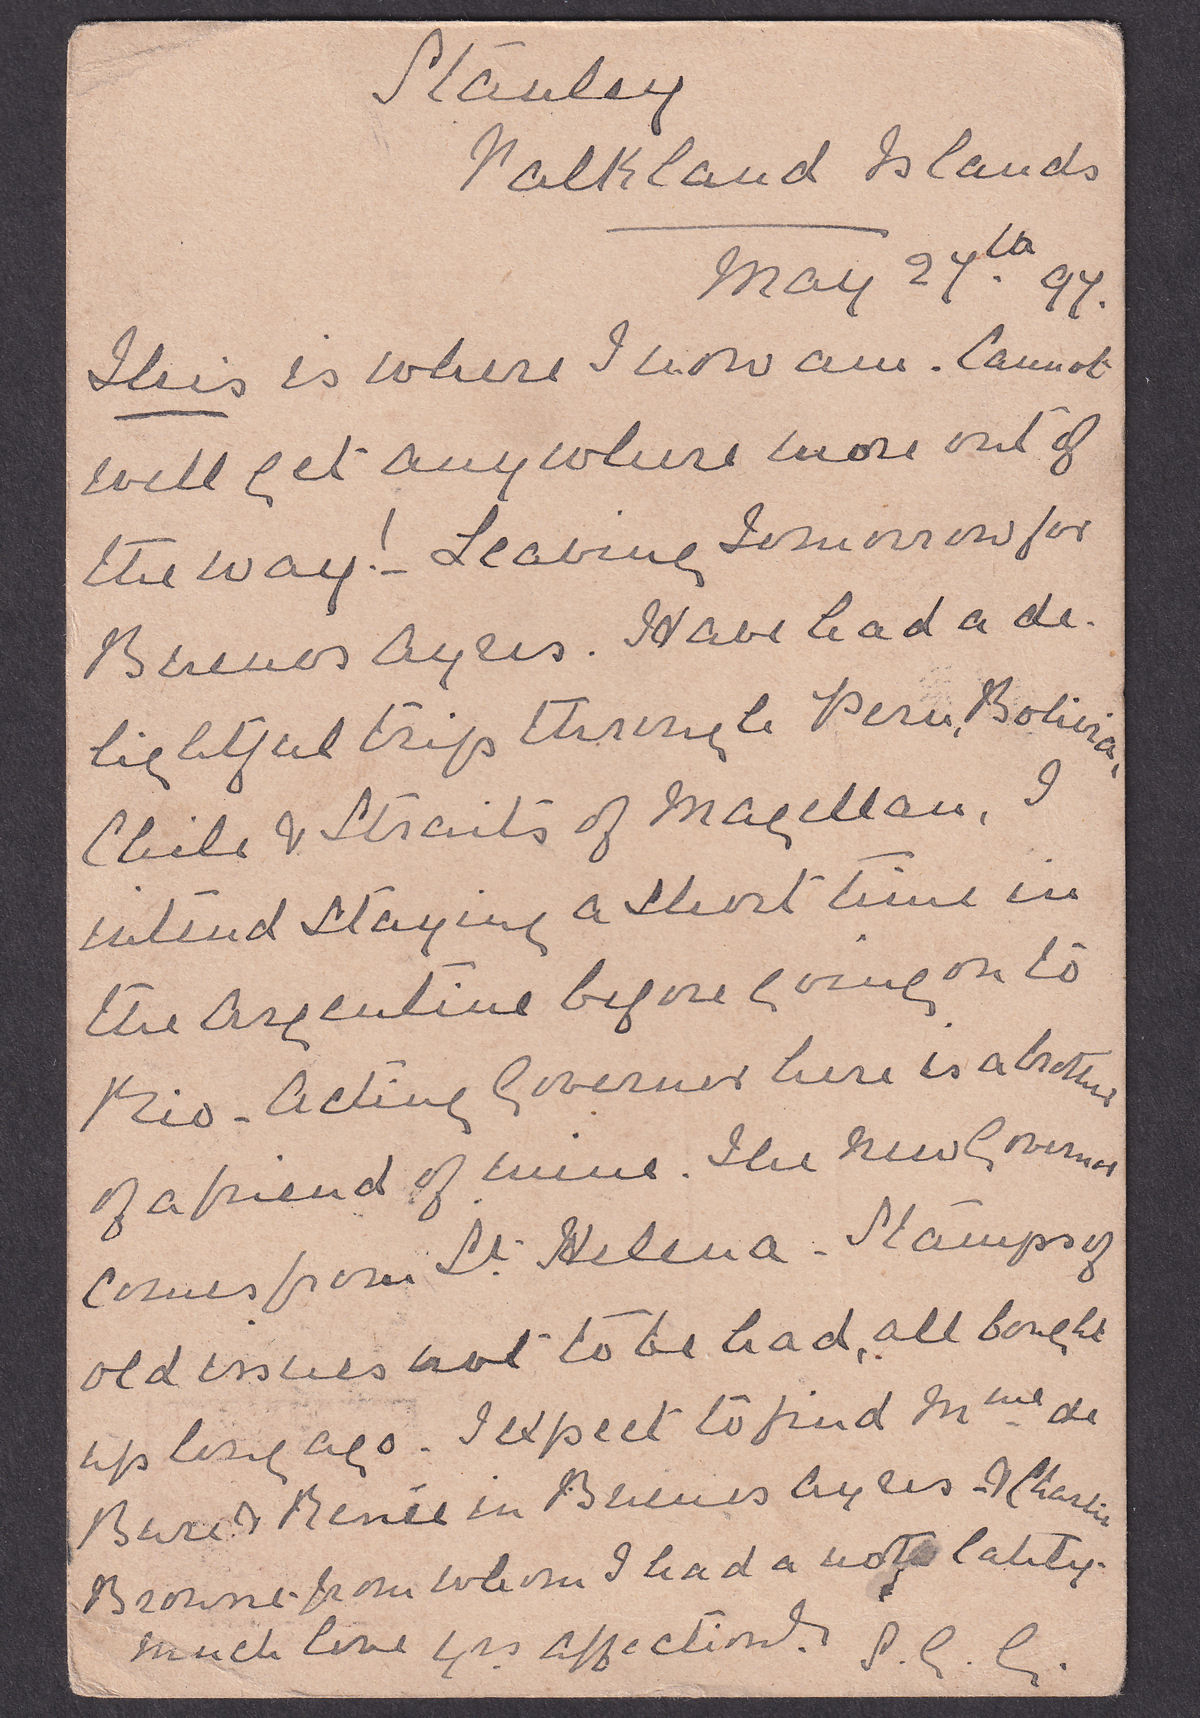 Stanley
Falkland Islands
May 27th. 97.
This is where I now am. Cannot
well get anywhere more out of
the way! - Leaving tomorrow for
Buenos Ayres. Have had a de-
lightful trip through Peru, Bolivia,
Chile & Straits of Magellan. I
intend staying a short time in
the Argentine before going on to
Rio - Acting Governor here is a brother
of a friend of mine. The new Governor
comes from St. Helena - Stamps of
old issues not to be had, all bought
up long ago. I expect to find Mme de
Bure & Renée in Buenos Ayres - & Charlie
Browne from whom I had a note lately.
Much love yrs. affectionly. S. G. G.